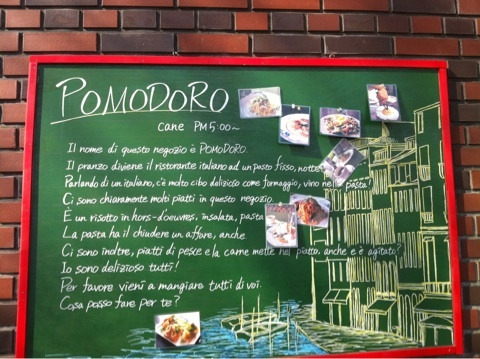 POMODORO
cane PM5:00~
Il nome di questo negozio è POMODORO.
Il pranzo diviene il ristorante italiano ad un pasto fisso, notte.
Parlando di un italiano, c'è molto cibo delizioso come formaggio, vino nella pasta
Ci sono chiaramente molti piatti in questo negozio.
È un risotto in hors-d'oeuvres, insalata, pasta
La pasta ha il chiudere un affore, anche.
Ci sono inoltre, piatti di pesce e la carne mette nel piatto, anche e è agitato?
Io sono delizioso tutti!
Per favore vieni a mangiare tutti di voi.
Cosa posso fare per te?